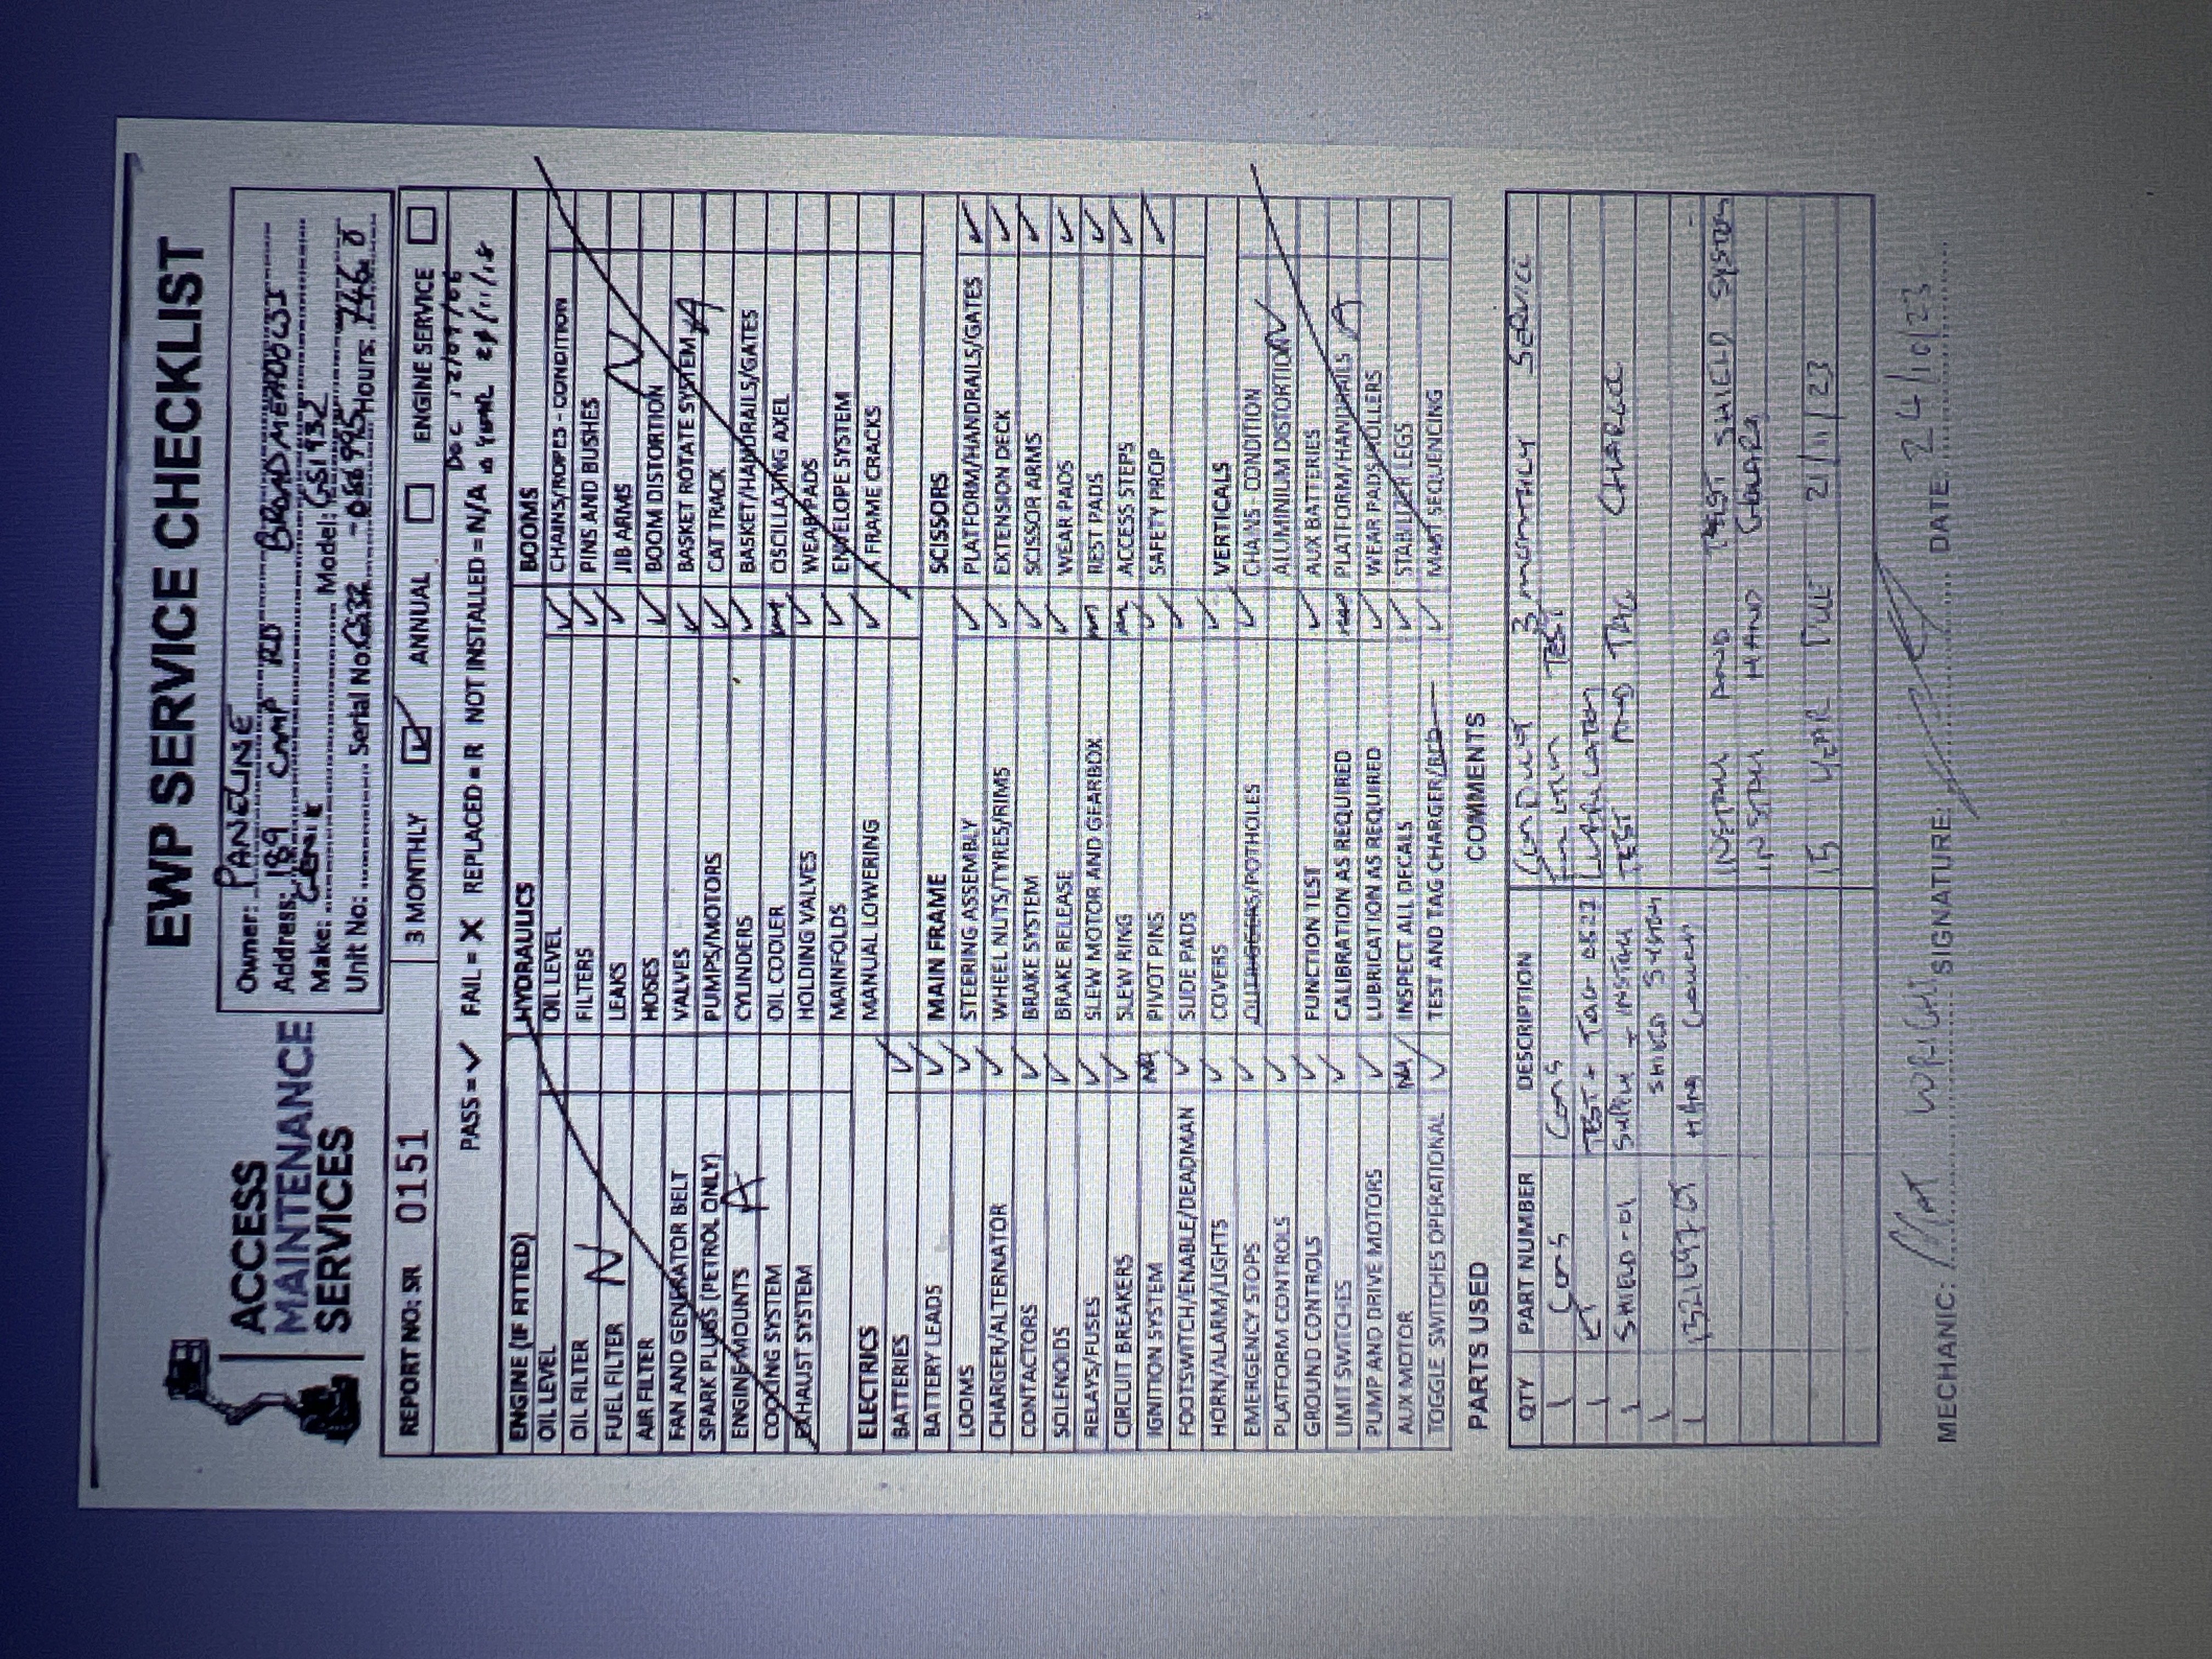 EWP SERVICE CHECKLIST
ACCESS
MAINTENANCE
SERVICES
Owner: PANELINE
Address: 189 CAMP RD BROADMEADOWS
Make: GENIE Model: GS1932
Unit No: Serial No: Hours:
REPORT NO: SR 01151 3 MONTHLY ✓ ANNUAL ENGINE SERVICE
PASS = ✓ FAIL = X REPLACED = R NOT INSTALLED = N/A
ENGINE (IF FITTED)
OIL LEVEL
OIL FILTER
FUEL FILTER
AIR FILTER
FAN AND GENERATOR BELT
SPARK PLUGS (PETROL ONLY)
ENGINE MOUNTS
COOLING SYSTEM
EXHAUST SYSTEM
N A
ELECTRICS
BATTERIES ✓
BATTERY LEADS ✓
LOOMS ✓
CHARGER/ALTERNATOR ✓
CONTACTORS ✓
SOLENOIDS ✓
RELAYS/FUSES ✓
CIRCUIT BREAKERS ✓
IGNITION SYSTEM NA
FOOTSWITCH/ENABLE/DEADMAN ✓
HORN/ALARM/LIGHTS ✓
EMERGENCY STOPS ✓
PLATFORM CONTROLS ✓
GROUND CONTROLS ✓
LIMIT SWITCHES ✓
PUMP AND DRIVE MOTORS ✓
AUX MOTOR NA
TOGGLE SWITCHES OPERATIONAL ✓
HYDRAULICS
OIL LEVEL ✓
FILTERS ✓
LEAKS ✓
HOSES ✓
VALVES ✓
PUMPS/MOTORS ✓
CYLINDERS ✓
OIL COOLER
HOLDING VALVES ✓
MAINFOLDS ✓
MANUAL LOWERING ✓
MAIN FRAME
STEERING ASSEMBLY ✓
WHEEL NUTS/TYRES/RIMS ✓
BRAKE SYSTEM ✓
BRAKE RELEASE ✓
SLEW MOTOR AND GEARBOX
SLEW RING
PIVOT PINS ✓
SLIDE PADS ✓
COVERS ✓
OUTRIGGERS/POTHOLES ✓
FUNCTION TEST ✓
CALIBRATION AS REQUIRED
LUBRICATION AS REQUIRED ✓
INSPECT ALL DECALS ✓
TEST AND TAG CHARGER/ ✓
BOOMS
CHAINS/ROPES - CONDITION
PINS AND BUSHES
JIB ARMS
BOOM DISTORTION
BASKET ROTATE SYSTEM
CAT TRACK
BASKET/HANDRAILS/GATES
OSCILLATING AXEL
WEAR PADS
ENVELOPE SYSTEM
A FRAME CRACKS
N A
SCISSORS
PLATFORM/HANDRAILS/GATES ✓
EXTENSION DECK ✓
SCISSOR ARMS ✓
WEAR PADS ✓
REST PADS ✓
ACCESS STEPS ✓
SAFETY PROP ✓
VERTICALS
CHAINS - CONDITION
ALUMINIUM DISTORTION
AUX BATTERIES
PLATFORM/HANDRAILS
WEAR PADS/ROLLERS
STABILIZER LEGS
MAST SEQUENCING
N A
PARTS USED
QTY PART NUMBER DESCRIPTION
1 CONS CONS
1 TEST + TAG
1 SHIELD-01 SUPPLY + INSTALL
1 SHIELD SYSTEM
1 HAND
COMMENTS
CONDUCT 3 MONTHLY SERVICE
FUNCTION TEST
LUBRICATION
TEST AND TAG CHARGE
INSTALL AND TEST SHIELD SYSTEM
INSTALL HAND
15 YEAR DUE 21/11/23
MECHANIC: MAT WRIGHT SIGNATURE: DATE: 24/10/23